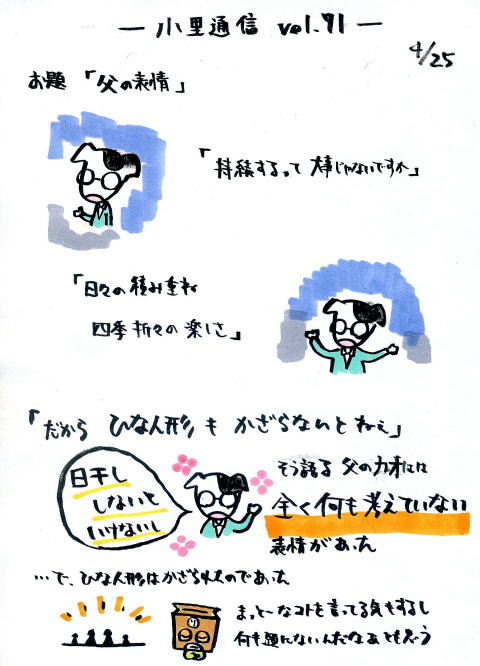 ― 小里通信 vol.91 ―
4/25
お題 「父の表情」
「持続するって 大事じゃないですか」
「日々の積み重ね
四季折々の楽しさ」
「だから ひな人形も かざらないとねぇ」
日干し
しないと
いけないし
そう語る 父のカオには
全く何も考えていない
表情があった
…で、ひな人形はかざられたのであった
まっとーなコトを言ってる気もするし
何も考えてないんだなぁとも思う